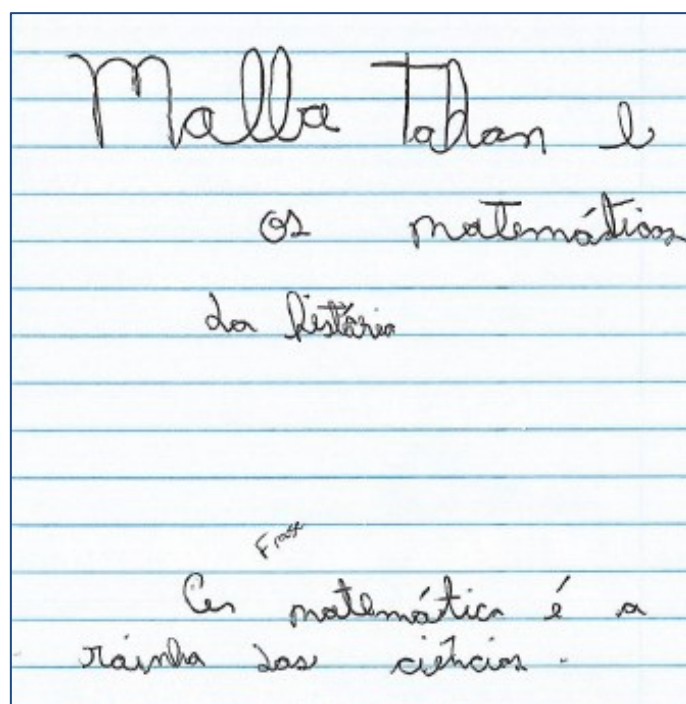 Malba Tahan e
os matemáticos
da história
Frase
A matemática é a
rainha das ciências.